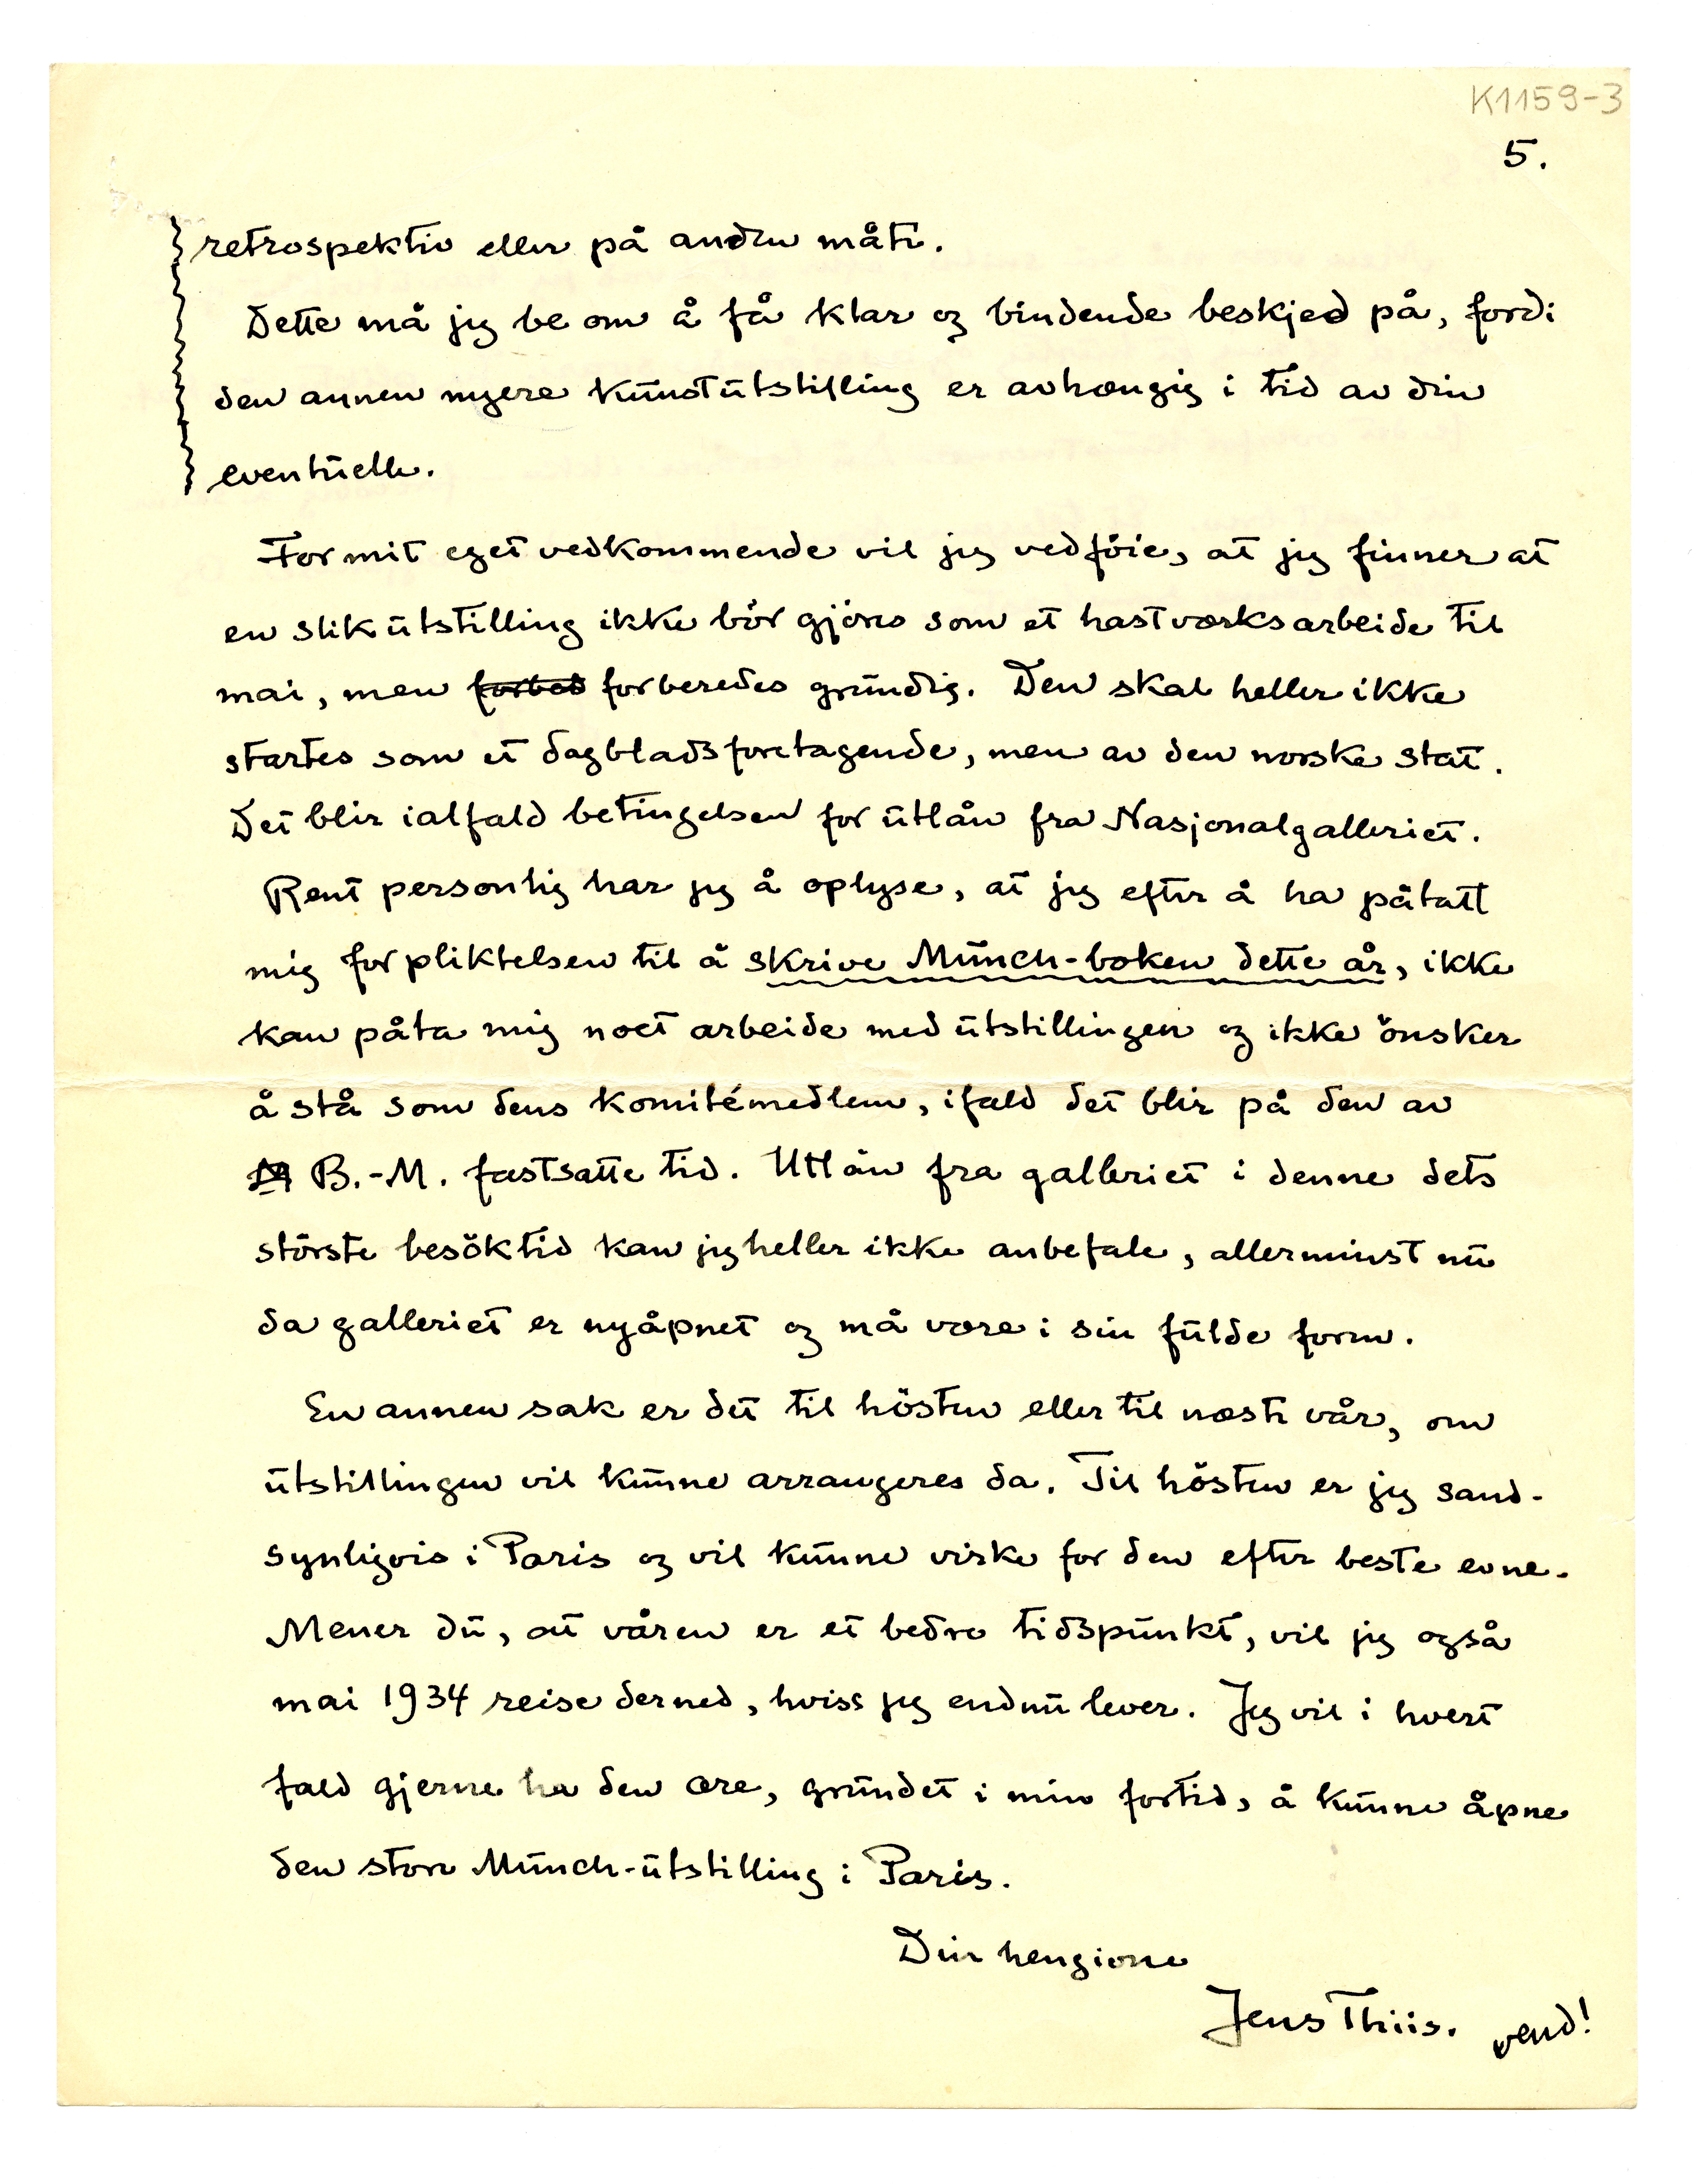 K1159-3
5.
retrospektiv eller på anden måte.
Dette må jeg be om å få klar og bindende beskjed på, fordi
den annen nyere kunstutstilling er avhængig i tid av din
eventuelle.
For mit eget vedkommende vil jeg vedföie, at jeg finner at
en slik utstilling ikke bör gjöres som et hastverksarbeide til
mai, men forbed forberedes grundig. Den skal heller ikke
startes som et dagbladsforetagende, men av den norske stat.
Det blir ialfald betingelsen for utlån fra Nasjonalgalleriet.
Rent personlig har jeg å oplyse, at jeg efter å ha påtatt
mig forpliktelsen til å skrive Munch-boken dette år, ikke
kan påta mig noet arbeide med utstillingen og ikke önsker
å stå som dens komitémedlem, ifald det blir på den av
B.-M. fastsatte tid. Utlån fra galleriet i denne dets
störste besöktid kan jeg heller ikke anbefale, allerminst nu
da galleriet er nyåpnet og må være i sin fulde form.
En annen sak er det til hösten eller til næste vår, om
utstillingen vil kunne arrangeres da. Til hösten er jeg sand-
synligvis i Paris og vil kunne virke for den efter beste evne.
Mener du, at våren er et bedre tidspunkt, vil jeg også
mai 1934 reise derned, hviss jeg endnu lever. Jeg vil i hvert
fald gjerne ha den ære, grundet i min fortid, å kunne åpne
den store Munch-utstilling i Paris.
Din hengivne
Jens Thiis. vend!